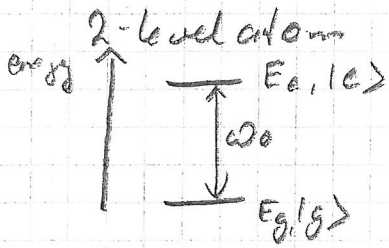 2-level atom
energy
Ee, |e>
ω₀
Eg, |g>